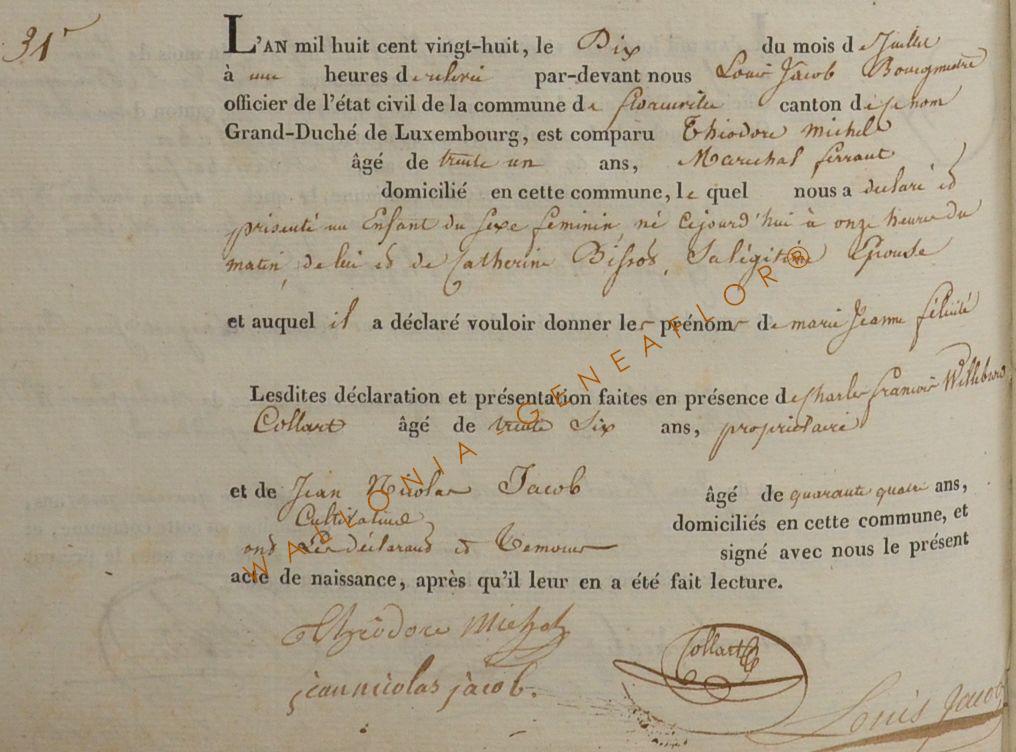 31e
L'AN mil huit cent vingt-huit, le Dix du mois de Juillet
à une heures de relevé par-devant nous Louis Jacob Bourgmestre
officier de l'état civil de la commune de florenville canton de ce nom
Grand-Duché de Luxembourg, est comparu Théodore michel
âgé de trente un ans, Marechal ferrant
domicilié en cette commune, le quel nous a déclaré et
présenté un Enfant du sexe feminin, né cejourd'hui à onze heures du
matin, de lui et de Catherine Bissot, Sa légitime Epouse
et auquel il a déclaré vouloir donner les prénoms de marie Jeanne félicité
Lesdites déclaration et présentation faites en présence de Charles françois Willebord
Collart âgé de trente Six ans, propriétaire
et de Jean Nicolas Jacob âgé de quarante quatre ans,
Cultivateur domiciliés en cette commune, et
ont Les déclarant et Temoins signé avec nous le présent
acte de naissance, après qu'il leur en a été fait lecture.
Théodore Michel
Collart
jean nicolas jacob.
Louis Jacob
WALLONIA GENEAFLOR®